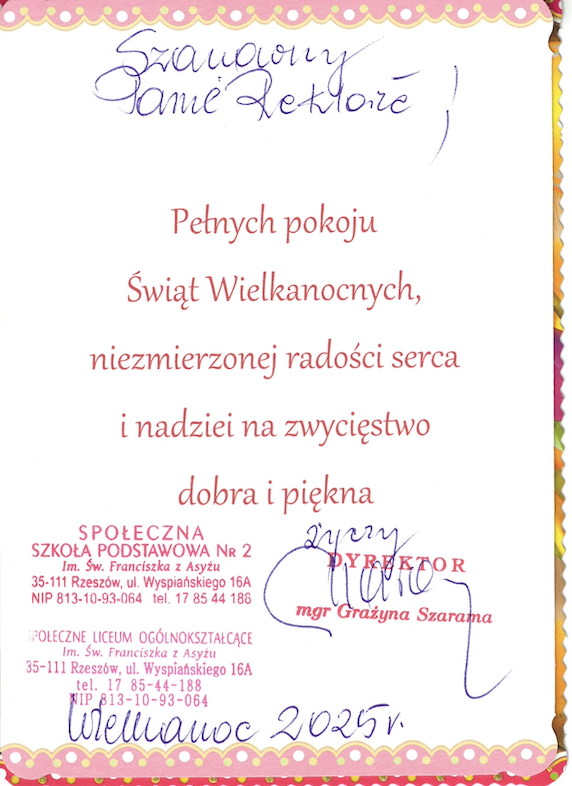 Szanowny
Panie Rektorze!
Pełnych pokoju
Świąt Wielkanocnych,
niezmierzonej radości serca
i nadziei na zwycięstwo
dobra i piękna
życzy
SPOŁECZNA
SZKOŁA PODSTAWOWA Nr 2
Im. Św. Franciszka z Asyżu
35-111 Rzeszów, ul. Wyspiańskiego 16A
NIP 813-10-93-064 tel. 17 85 44 188
DYREKTOR
mgr Grażyna Szarama
SPOŁECZNE LICEUM OGÓLNOKSZTAŁCĄCE
Im. Św. Franciszka z Asyżu
35-111 Rzeszów, ul. Wyspiańskiego 16A
tel. 17 85-44-188
NIP 813-10-93-064
Wielkanoc 2025 r.